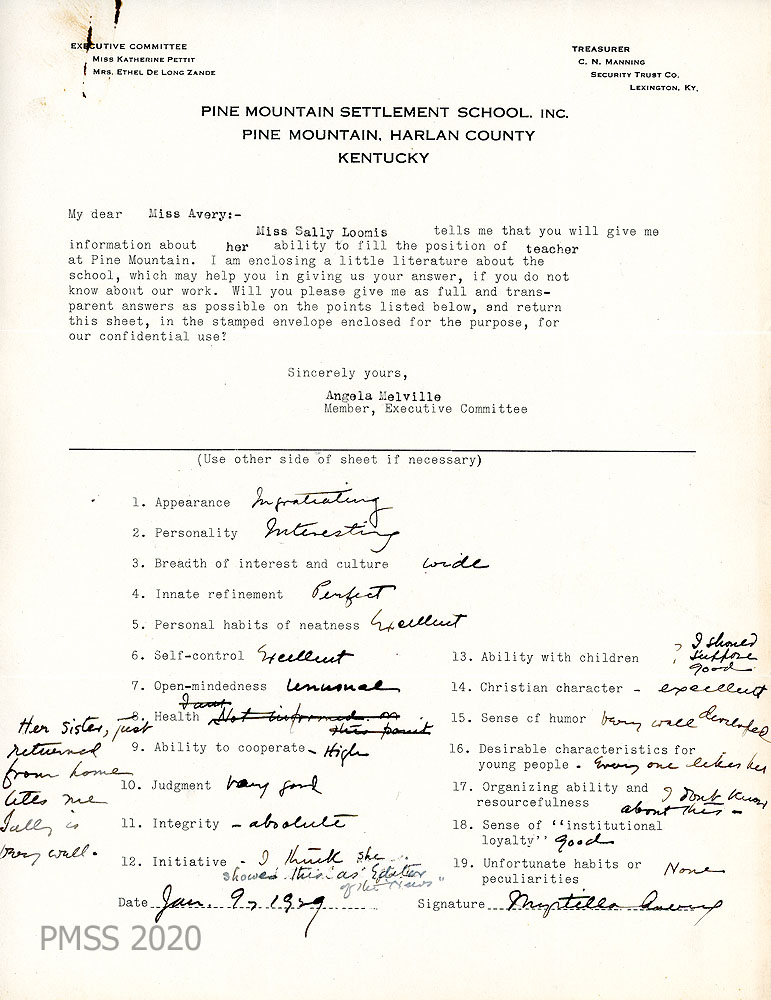 EXECUTIVE COMMITTEE
MISS KATHERINE PETTIT
MRS. ETHEL DE LONG ZANDE
TREASURER
C. N. MANNING
SECURITY TRUST CO.
LEXINGTON, KY.
PINE MOUNTAIN SETTLEMENT SCHOOL, INC.
PINE MOUNTAIN, HARLAN COUNTY
KENTUCKY
My dear Miss Avery:-
Miss Sally Loomis tells me that you will give me
information about her ability to fill the position of teacher
at Pine Mountain. I am enclosing a little literature about the
school, which may help you in giving us your answer, if you do not
know about our work. Will you please give me as full and trans-
parent answers as possible on the points listed below, and return
this sheet, in the stamped envelope enclosed for the purpose, for
our confidential use?
Sincerely yours,
Angela Melville
Member, Executive Committee
(Use other side of sheet if necessary)
1. Appearance Ingratiating
2. Personality Interesting
3. Breadth of interest and culture wide
4. Innate refinement Perfect
5. Personal habits of neatness Excellent
6. Self-control Excellent
7. Open-mindedness Unusual
I am
8. Health Not informed on
this point
Her sister, just
returned
from home
tells me
Sally is
very well.
9. Ability to cooperate - High
10. Judgment very good
11. Integrity - absolute
12. Initiative - I think she
showed this as Editor
of the News"
13. Ability with children ? I should
suppose
good
14. Christian character - excellent
15. Sense of humor very well developed
16. Desirable characteristics for
young people - Every one likes her
17. Organizing ability and
resourcefulness I don't know
about this -
18. Sense of ''institutional
loyalty'' good
19. Unfortunate habits or
peculiarities None
Date Jan. 9, 1929
Signature Myrtilla Avery
PMSS 2020